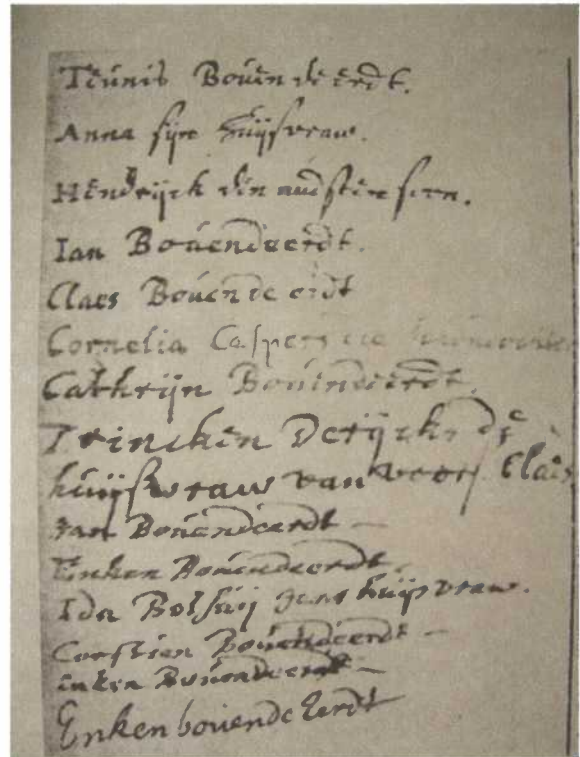 Teúnis Boúen de eerdt.
Anna sijn huijsvraw.
Hendrijck den audsten soen.
Ian Boúendeerdt.
Claes Boúen de erdt
Cornelia Caspers
Cathrijn Boúendeerdt.
Trincken Derijcks de
huijsvraw van voors Claes
Jan Boúendeerdt
Enken Boúendeerdt.
Ida Bolsuij Jans huijsvraw.
Corstien Boúendeerdt
Enken Boúendeerdt
Enken bouende Eerdt